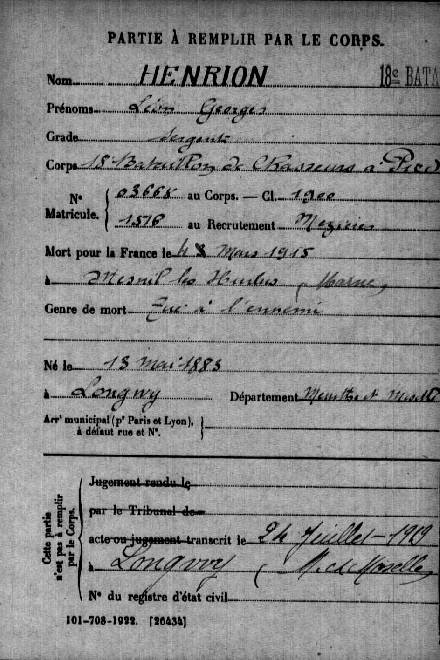 PARTIE À REMPLIR PAR LE CORPS.
Nom HENRION 18e BATA
Prénoms Léon Georges
Grade Sergent
Corps 18e Bataillon de Chasseurs à Pied
No Matricule. 03668 au Corps. — Cl. 1900
1516 au Recrutement Mézières
Mort pour la France le 4 Mars 1915
à Mesnil les Hurlus (Marne)
Genre de mort Tué à l'ennemi
Né le 13 mai 1883
à Longwy Département Meurthe et Moselle
Arrt municipal (pr Paris et Lyon), à défaut rue et No.
Cette partie n'est pas à remplir par le Corps.
Jugement rendu le
par le Tribunal de
acte ou jugement transcrit le 24 Juillet 1919
à Longwy (M. et Moselle
No du registre d'état civil
101-708-1922. [26434]